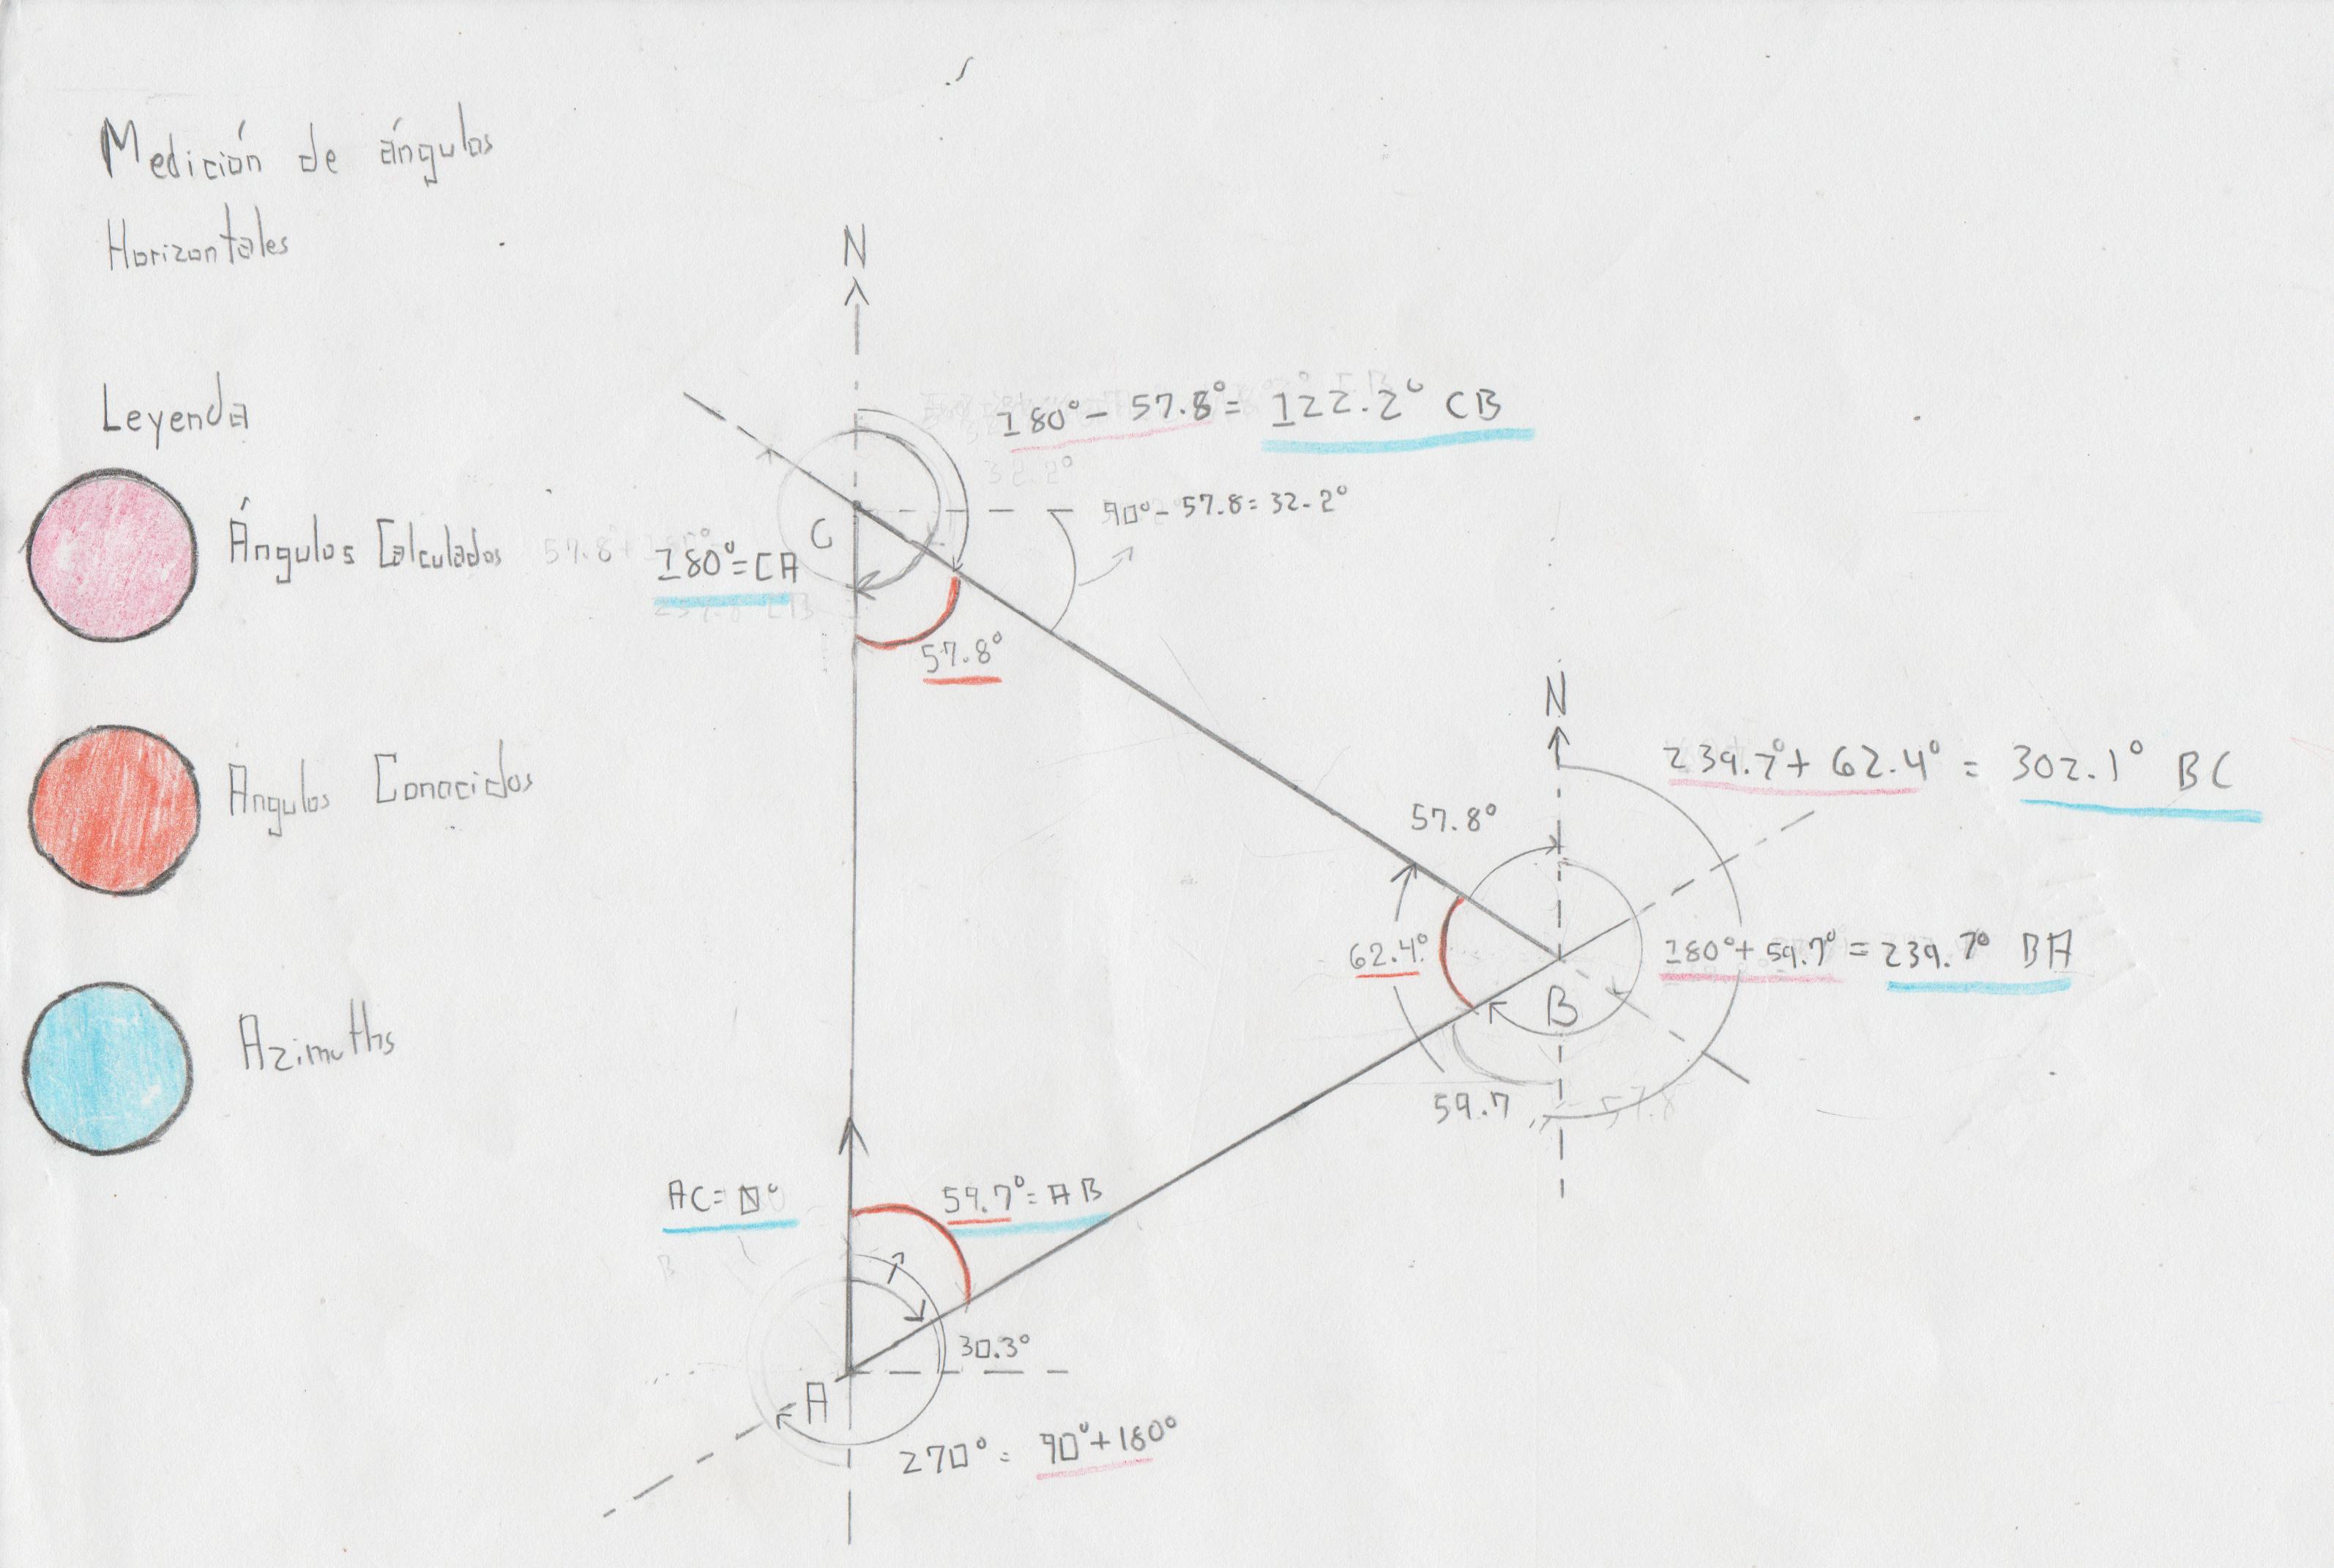 Medición de ángulos
Horizontales
Leyenda
Ángulos Calculados
Angulos Conocidos
Azimuths
N
180° - 57.8° = 122.2° CB
90° - 57.8 = 32.2°
C
180° = CA
57.8°
N
239.7° + 62.4° = 302.1° BC
57.8°
62.4°
180° + 59.7° = 239.7° BA
B
59.7
57.8
AC = 0°
59.7° = AB
30.3°
A
270° = 90° + 180°